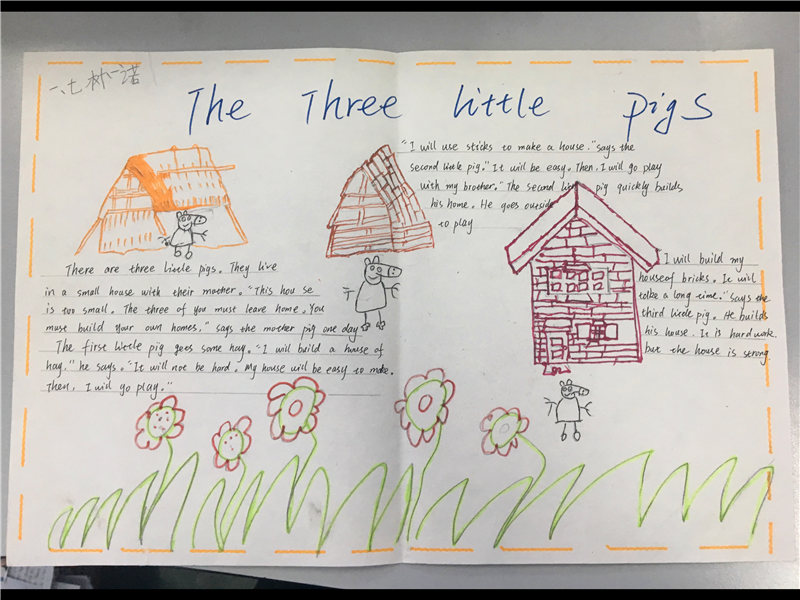 一、七 林一诺
The Three little pigs
There are three little pigs. They live
in a small house with their mother. "This hou se
is too small. The three of you must leave home. You
must build your own homes." says the mother pig one day
The first little pig goes some hay. "I will build a house of
hay." he says. "It will not be hard. My house will be easy to make.
Then, I will go play."
"I will use sticks to make a house." says the
second little pig." It will be easy. Then, I will go play
with my brother." The second little pig quickly builds
his home. He goes outside
to play
"I will build my
houseof bricks. It will
take a long time." says the
third little pig. He builds
his house. It is hardwork.
but the house is strong.